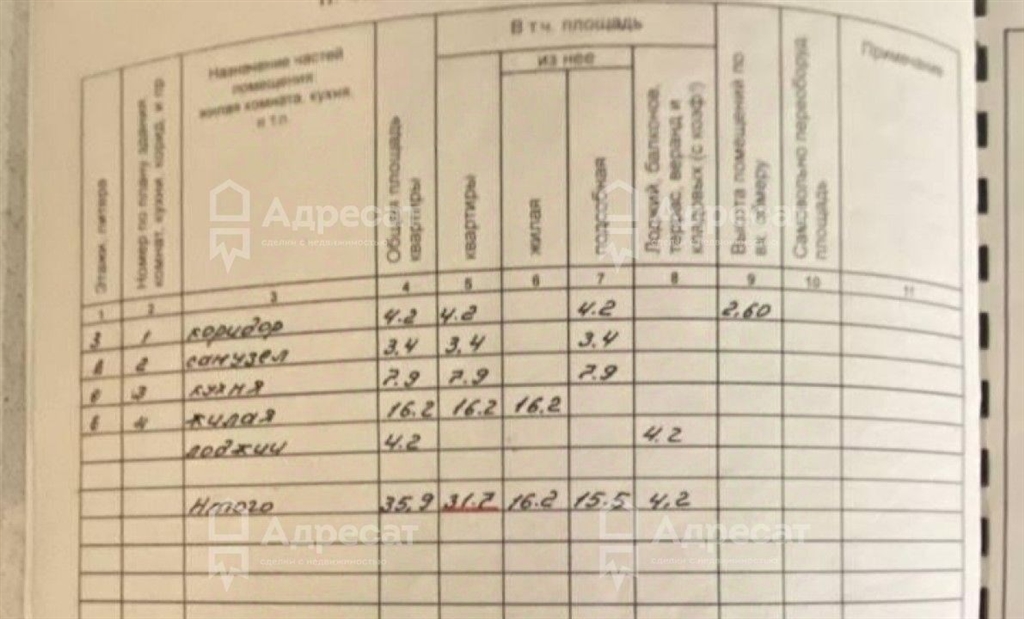 В т ч. площадь
из нее
Назначение частей
помещения:
жилая комната, кухня,
и т.п.
Этажи, литера
Номер по плану здания,
комнат, кухни, корид. и пр
Общая площадь
квартиры
квартиры
жилая
подсобная
Лоджий, балконов,
террас, веранд и
кладовых (с коэф.)
Высота помещений по
вн. обмеру
Самовольно переоборуд.
площадь
Примечание
1 2 3 4 5 6 7 8 9 10 11
1 коридор 4.2 4.2 4.2 2,60
2 санузел 3,4 3,4 3.4
3 кухня 7.9 7.9 7.9
4 жилая 16.2 16.2 16.2
лоджии 4.2 4.2
Итого 35,9 31.7 16.2 15.5 4,2
Адресат
сделки с недвижимостью
Адресат
сделки с недвижимостью
Адресат
сделки с недвижимостью
Адресат
сделки с недвижимостью